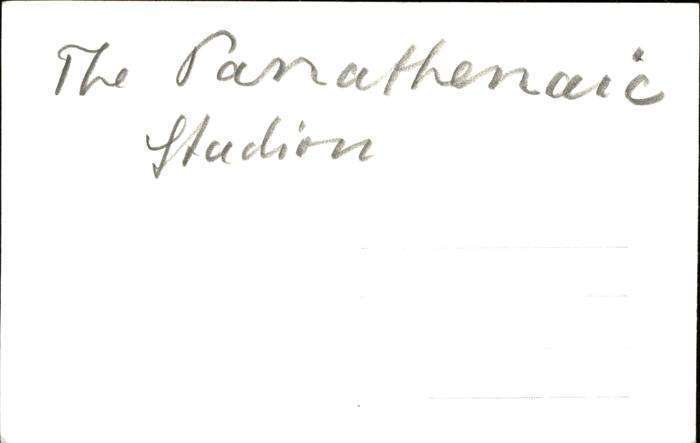 The Panathenaic
Stadion